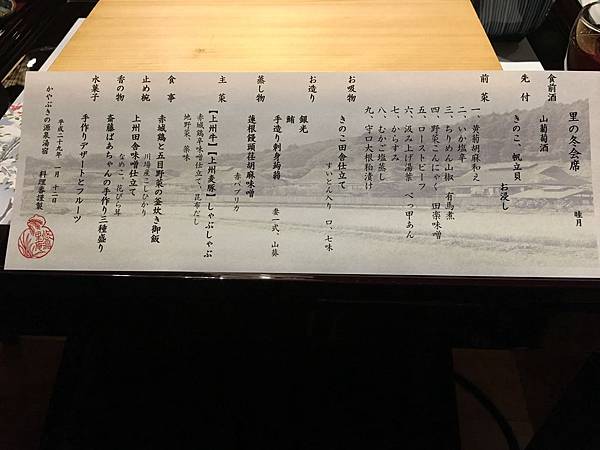 里の冬会席
睦月
食前酒
山葡萄酒
先付
きのこ、帆立貝 お浸し
前菜
一、黄葡胡麻和え
二、いか塩辛
三、ちりめん山椒 有馬煮
四、野菜こんにゃく 田楽味噌
五、ローストビーフ
六、汲み上げ湯葉 べっ甲あん
七、からすみ
八、むかご塩蒸し
九、守口大根粕漬け
お吸物
きのこ田舎仕立て
すいとん入り 口、七味
お造り
銀光
鮪
手造り刺身蒟蒻
妻一式、山葵
蒸し物
蓮根饅頭荏胡麻味噌
赤パプリカ
主菜
【上州牛】【上州麦豚】しゃぶしゃぶ
赤城鶏辛味噌仕立て、昆布だし
地野菜、薬味
食事
赤城鶏と五目野菜の釜炊き御飯
川場産こしひかり
止め椀
上州田舎味噌仕立て
なめこ、花びら茸
香の物
斎藤ばあちゃんの手作り三種盛り
水菓子
手作りデザートとフルーツ
かやぶきの源泉湯宿
平成二十九年 一月 十二日
料理長謹製